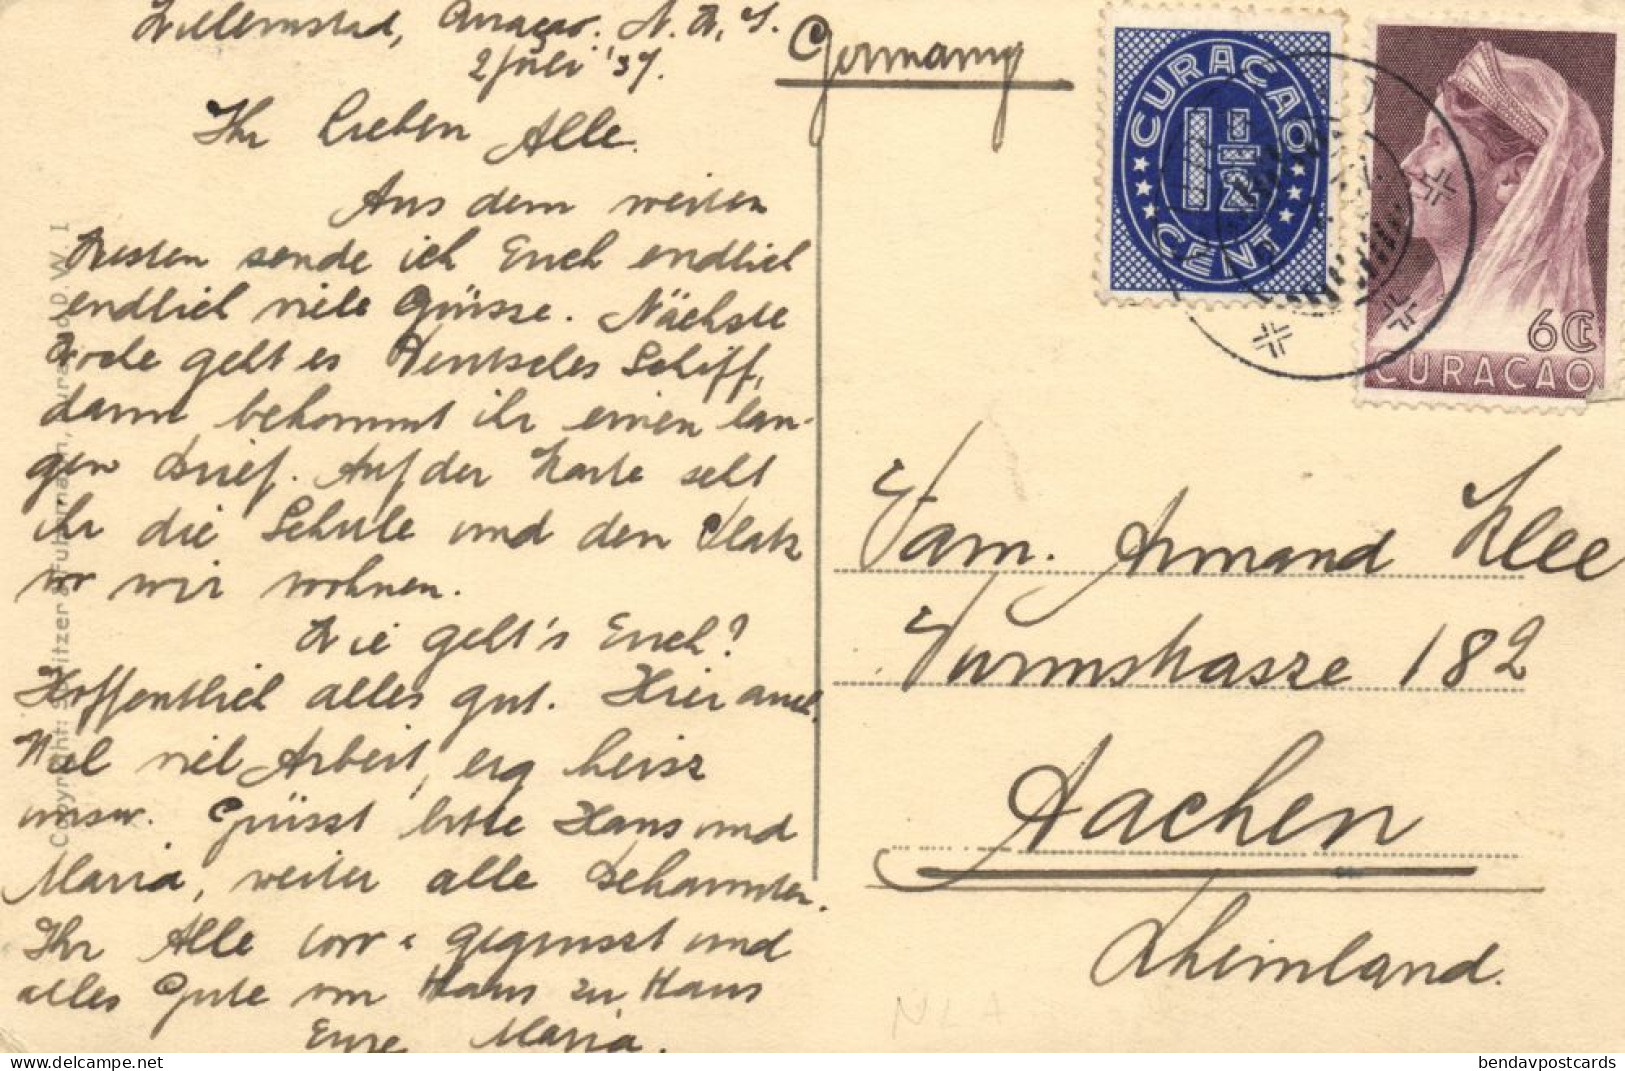 Willemstad, Curaçao. N. W. I.
2 Juli '37.
Ihr Lieben Alle.
Aus dem weiten
Westen sende ich Euch endlich
endlich viele Grüsse. Nächste
Woche geht es Deutsches Schiff,
dann bekommt ihr einen lan-
gen Brief. Auf der Karte seht
ihr die Schule und den Platz
wo wir wohnen.
Wie geht's Euch?
Hoffentlich alles gut. Hier auch.
viel Arbeit, erg heisz
usw. Grüsst bitte Hans und
Maria, weiter alle Bekannten.
Ihr Alle gegrüsst und
alles Gute von Haus zu Haus
Eure Maria.
Germany
CURAÇAO
1½
CENT
6 CT
CURAÇAO
Fam. Armand Klee
Turmstrasse 182
Aachen
Rheinland.
NLA
Copyright: Spritzer & Fuhrmann, Curaçao D.W.I
delcampe.net
bendavpostcards